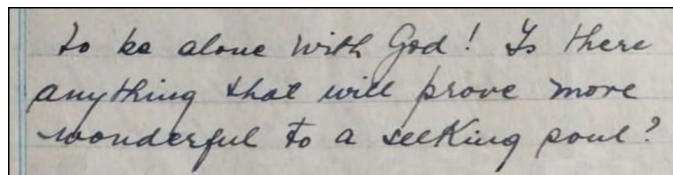 to be alone with God! Is there
anything that will prove more
wonderful to a seeking soul?